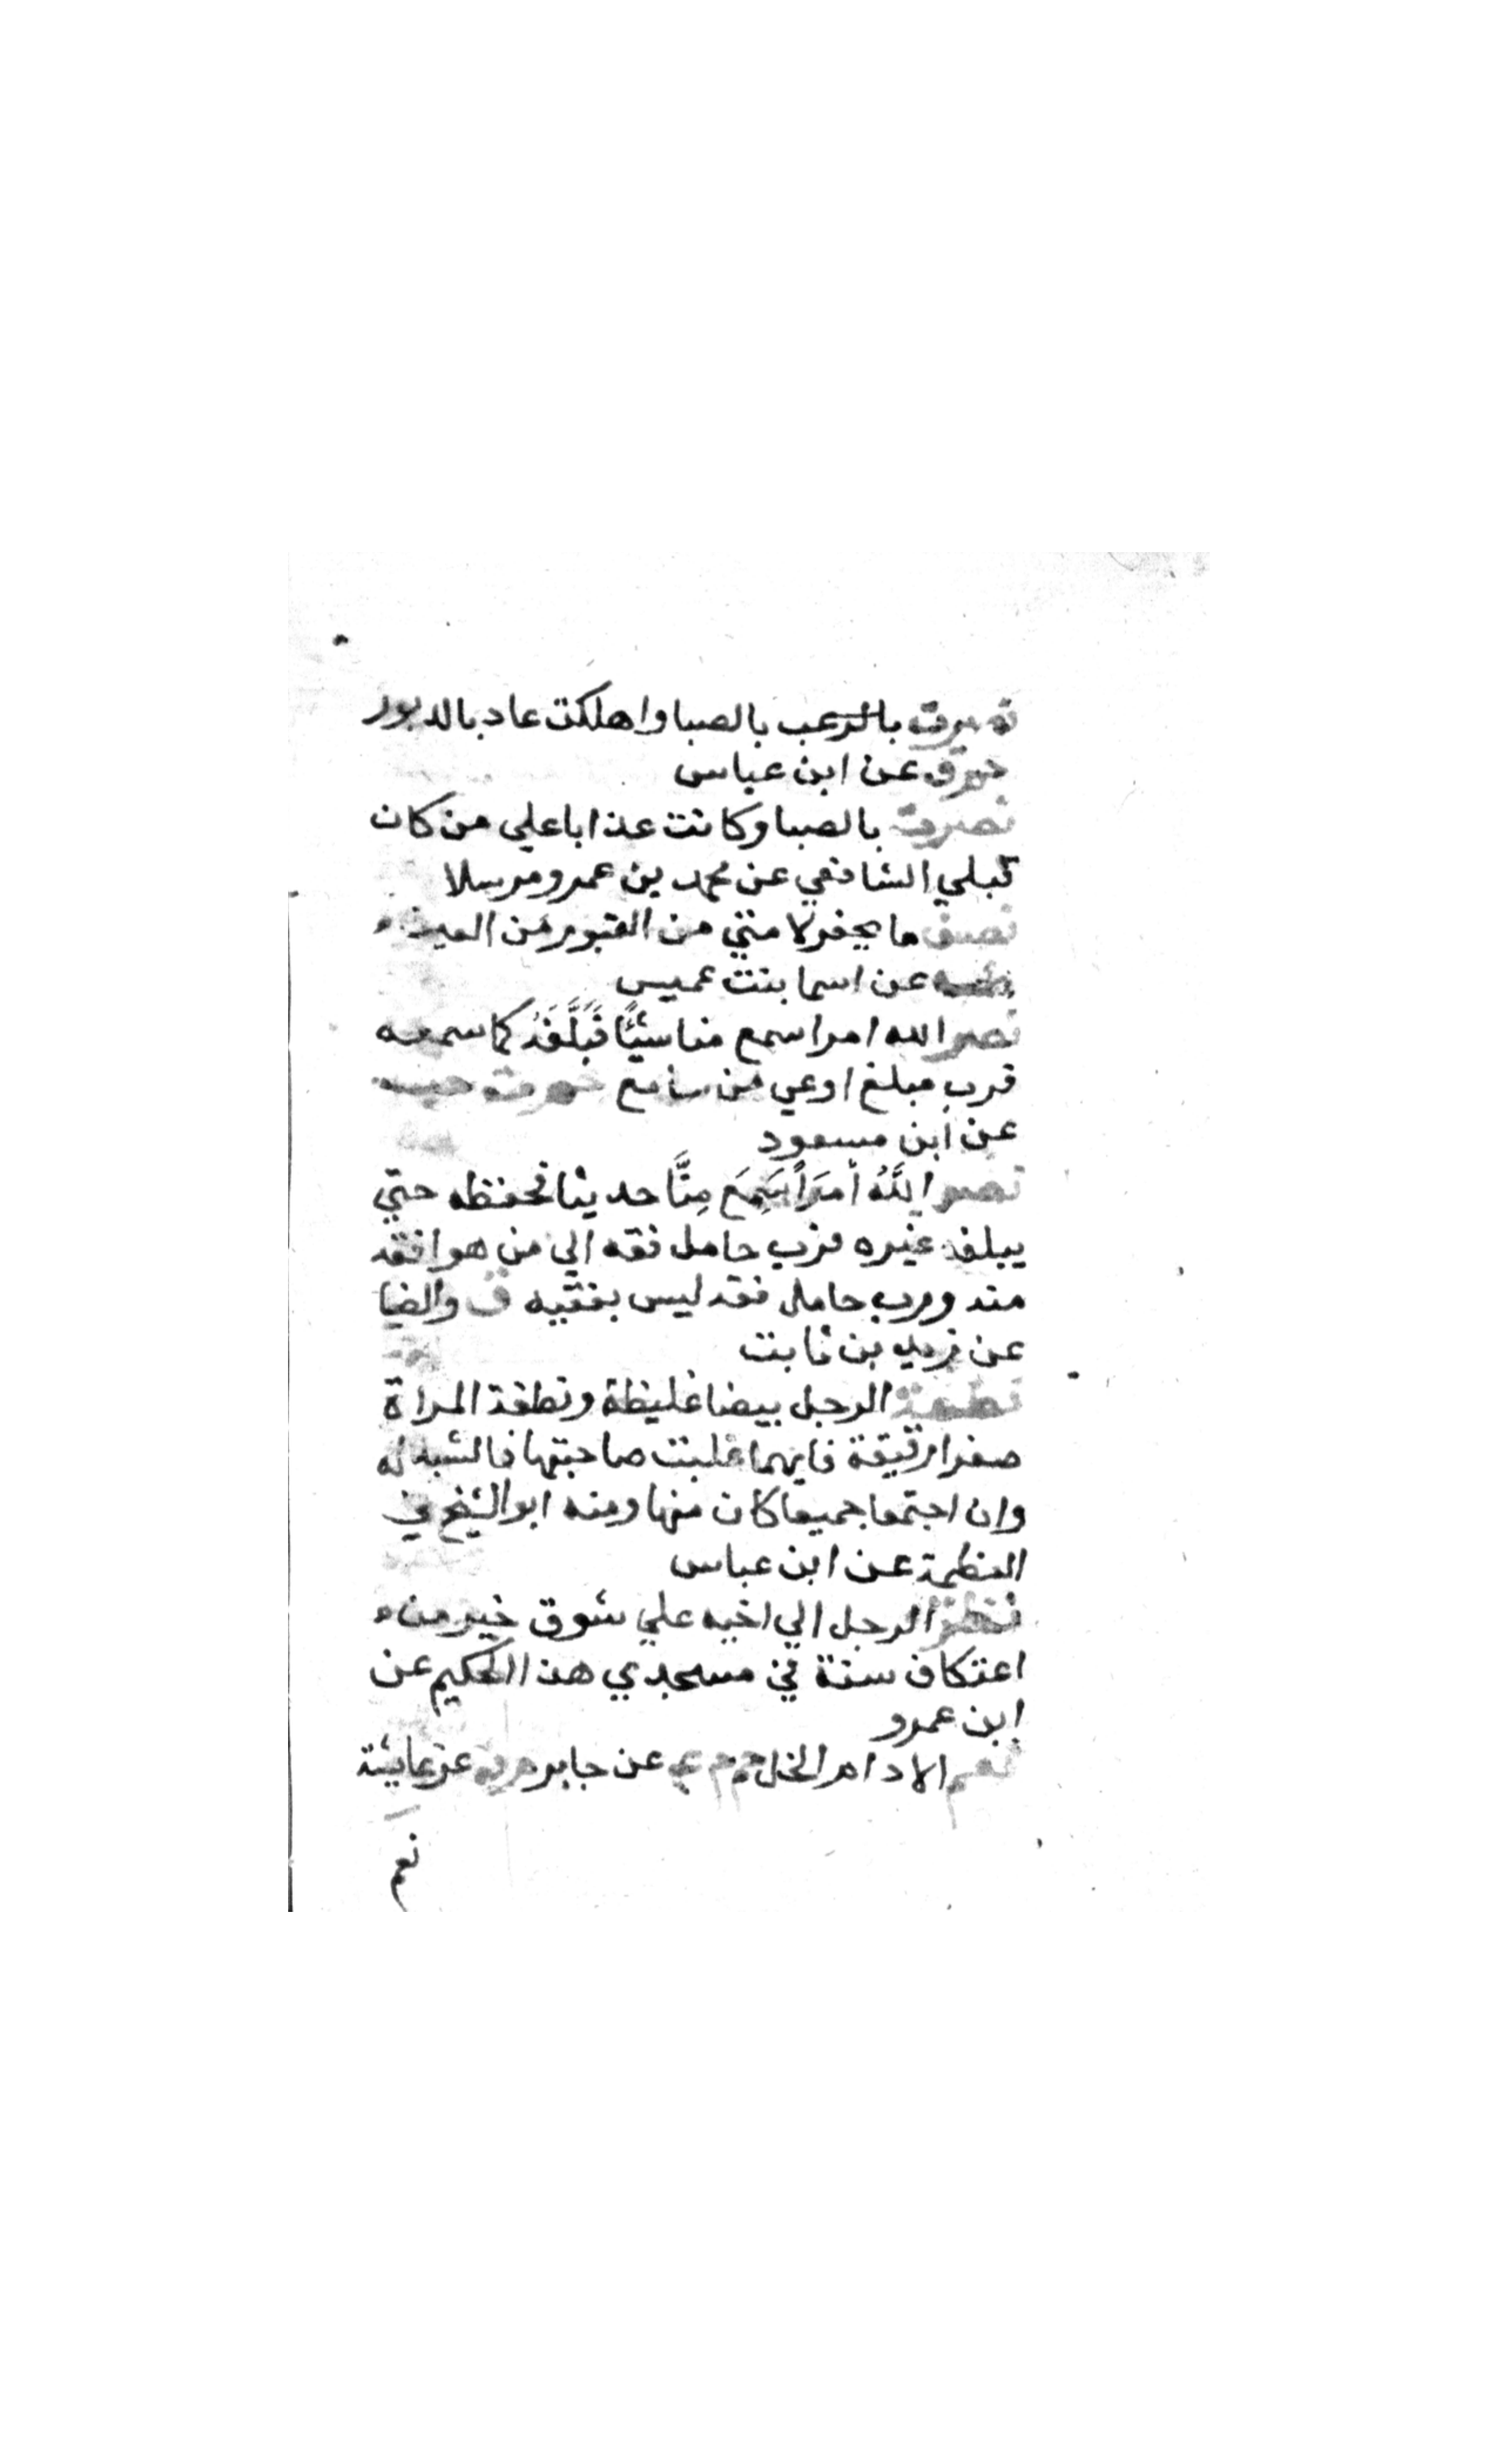 نصرت بالرعب بالصبا واهلكت عاد بالدبور
حم ق عن ابن عباس
نصرت بالصبا وكانت عذابا علي من كان
قبلي الشافعي عن محمد بن عمرو مرسلا
نصف ما يحفر لامتي من القبور من العين
عن اسما بنت عميس
نضر الله امرا سمع منا شيئًا فَبَلَّغَهُ كما سمعه
فرب مبلغ اوعي من سامع حم ت حب
عن ابن مسعود
نضر اللَّهُ أمرَاً سَمِعَ مِنَّا حديثا فحفظه حتي
يبلغه غيره فرب حامل فقه الي من هو افقه
منه ورب حامل فقه ليس بفقيه ت والضيا
عن زيد بن ثابت
نطفة الرجل بيضا غليظة ونطفة المراة
صفرا رقيقة فايهما غلبت صاحبتها فالشبه له
وان اجتمعا جميعا كان منها ومنه ابو الشيخ في
العظمة عن ابن عباس
نظر الرجل الي اخيه علي شوق خير من
اعتكاف سنة في مسجدي هذا الحكيم عن
ابن عمرو
نعم الادام الخل حم م ع عن جابر م ت عن عايشة
نعم